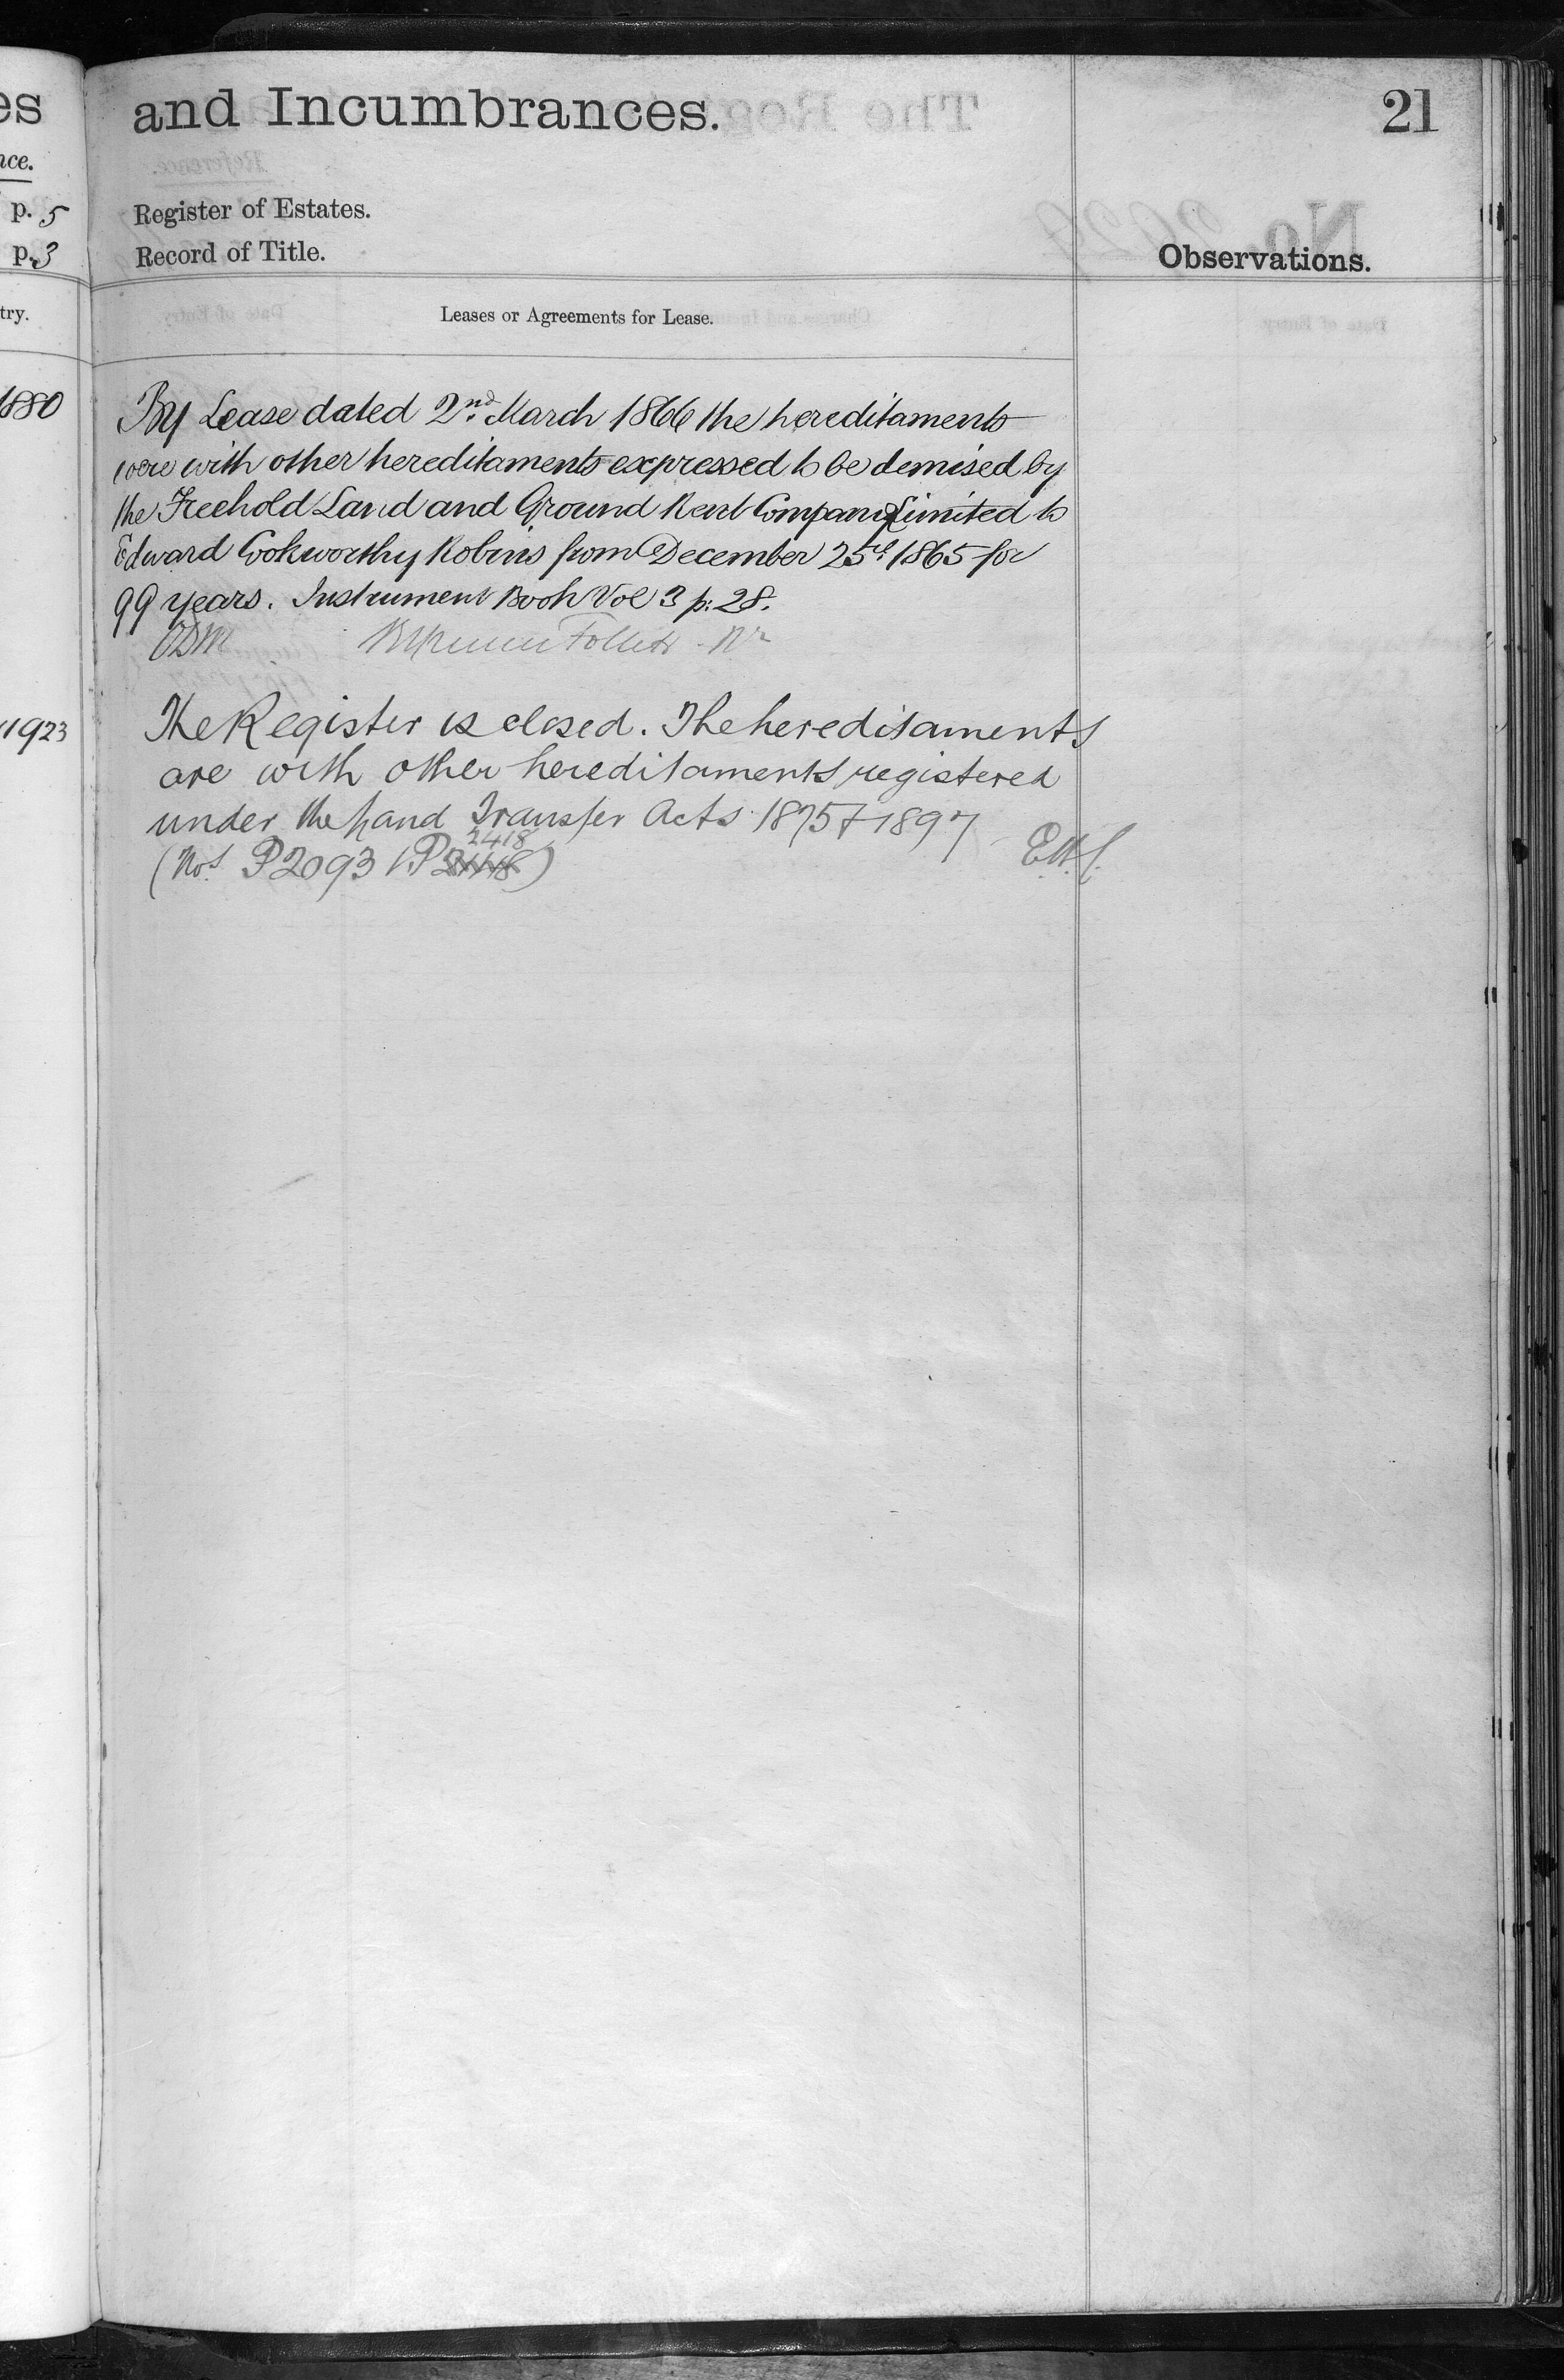 es
nce.
p. 5
p. 3
try.
1880
1923
and Incumbrances.
21
Register of Estates.
Record of Title.
Observations.
Leases or Agreements for Lease.
By Lease dated 2nd March 1866 the hereditaments
were with other hereditaments expressed to be demised by
the Freehold Land and Ground Rent Company Limited to
Edward Cookworthy Robins from December 25th 1865 for
99 years. Instrument Book Vol 3 p: 28.
Follett
The Register is closed. The hereditaments
are with other hereditaments registered
under the Land Transfer Acts 1875 & 1897
(Nos. P2093 & P 2418)